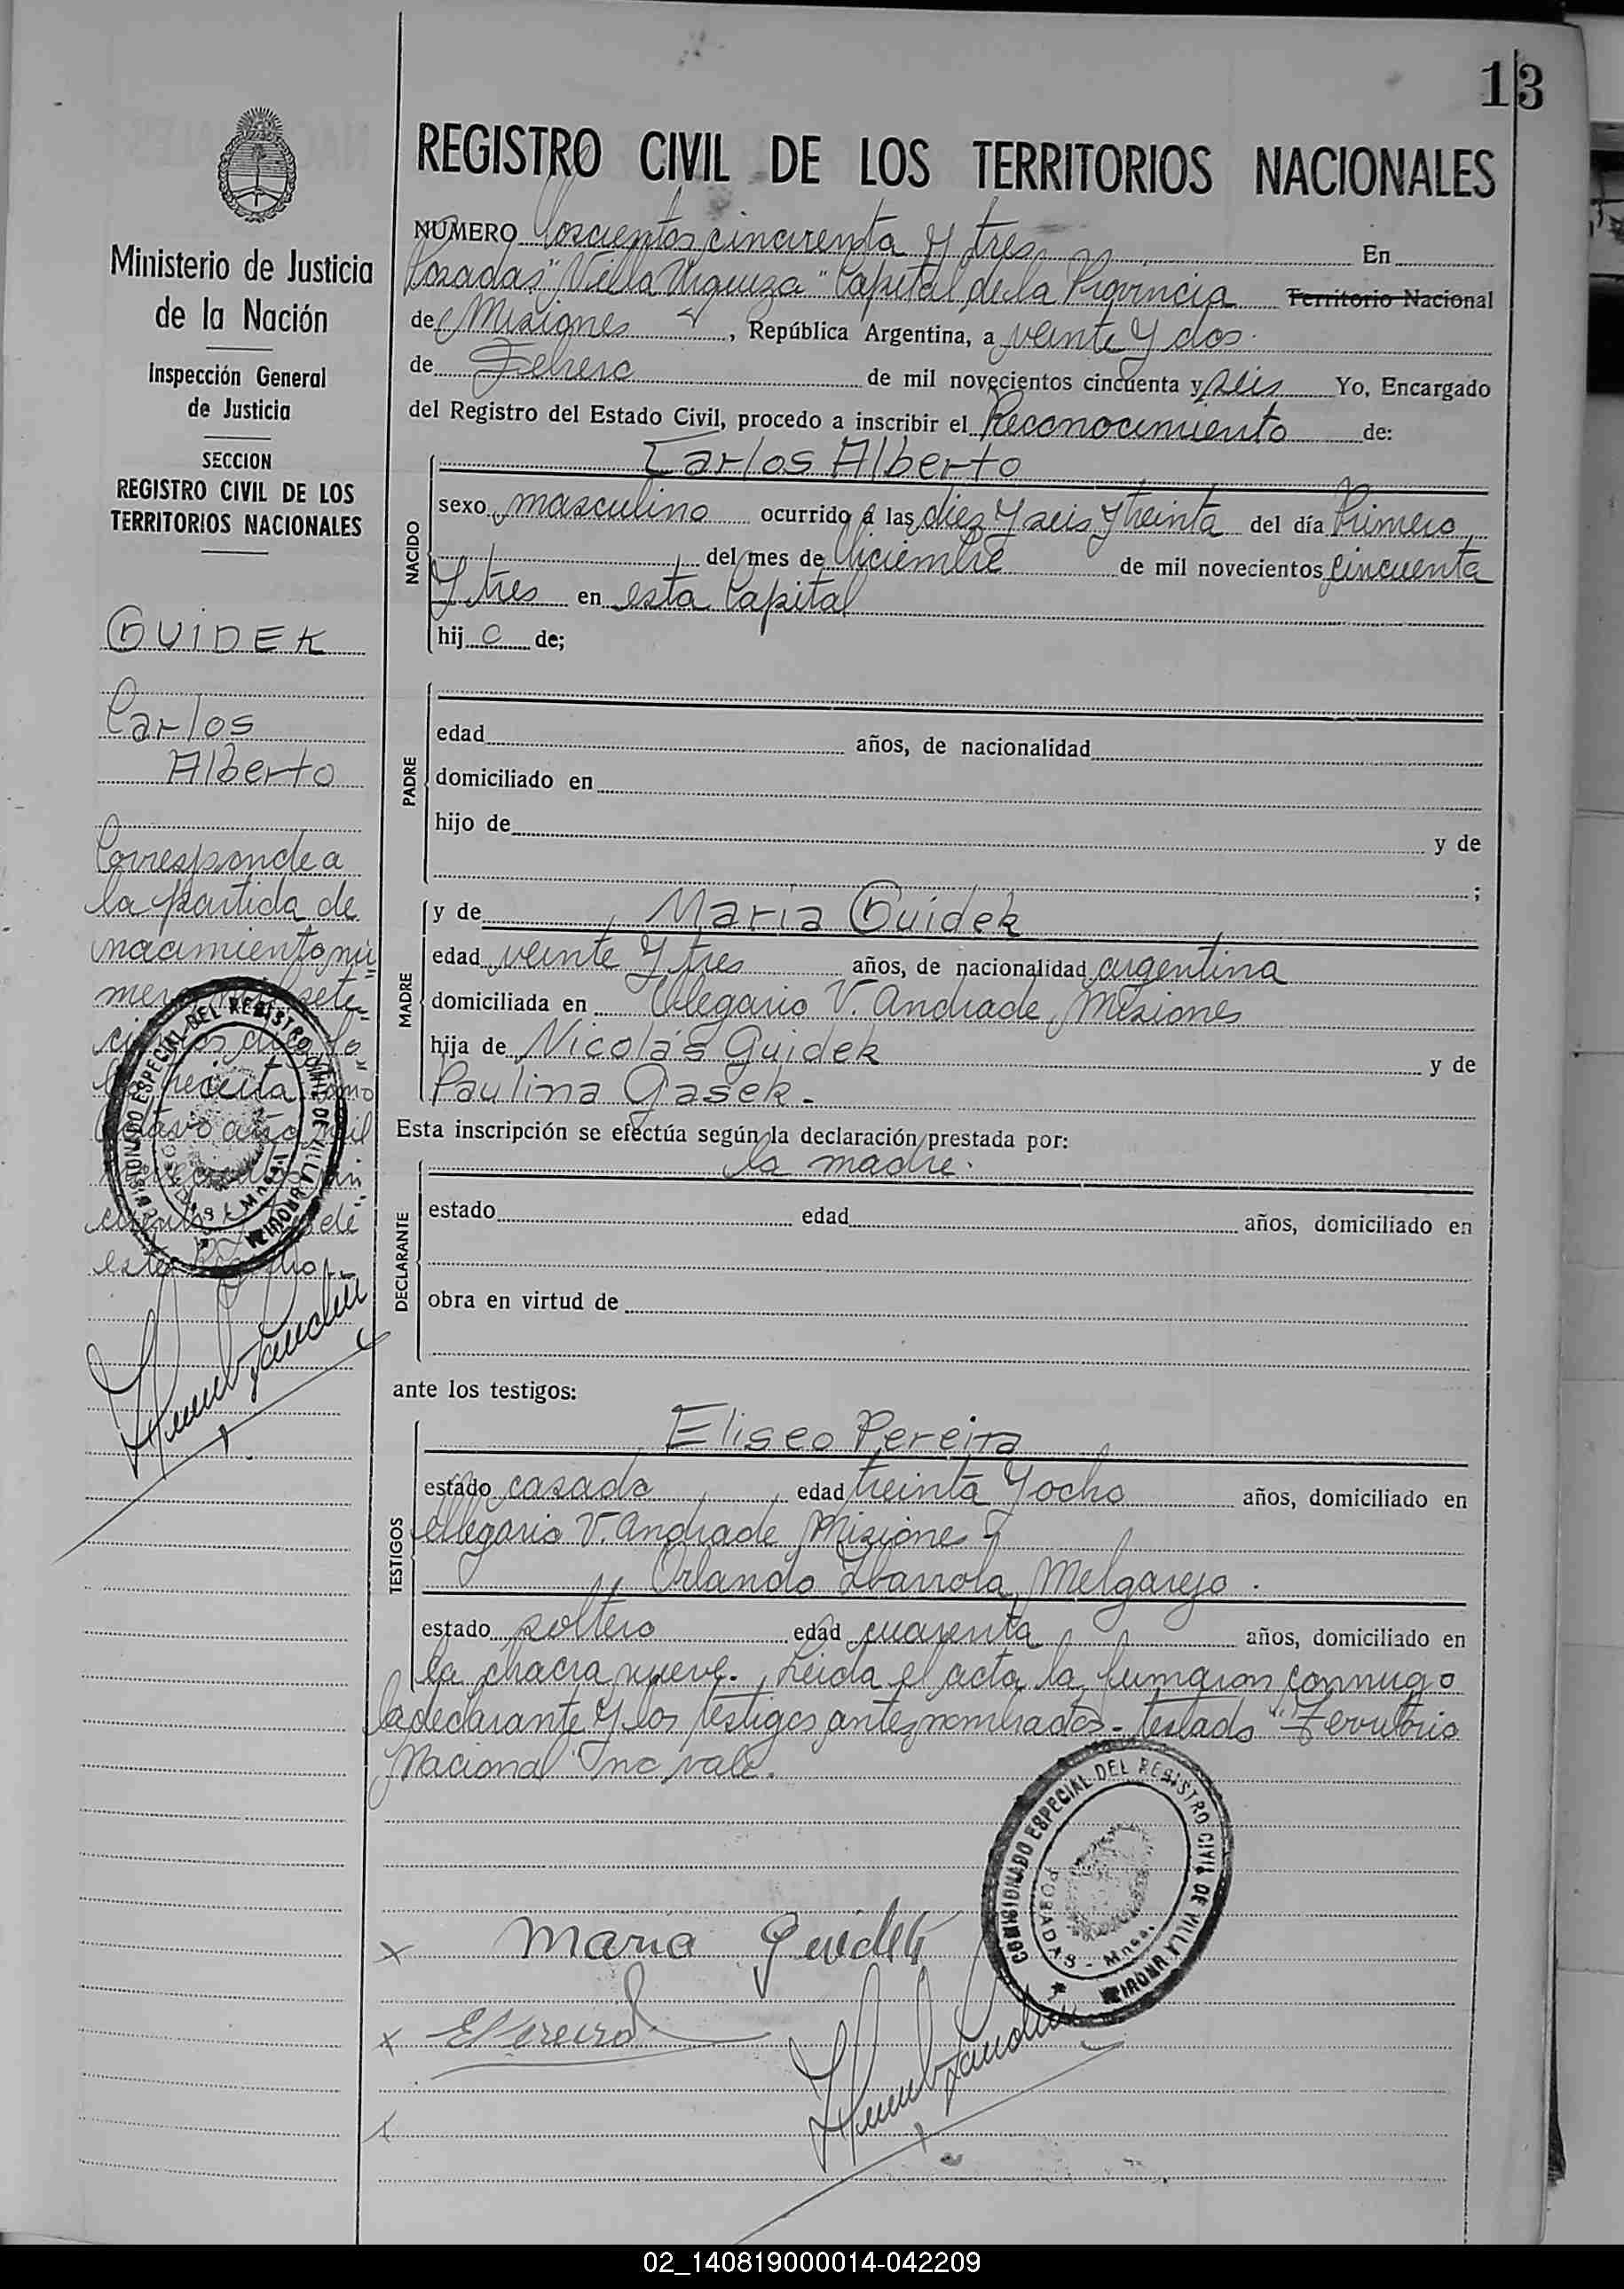 13
REGISTRO CIVIL DE LOS TERRITORIOS NACIONALES
Ministerio de Justicia
de la Nación
Inspección General
de Justicia
SECCION
REGISTRO CIVIL DE LOS
TERRITORIOS NACIONALES
GUIDEK
Carlos
Alberto
Corresponde a
la partida de
nacimiento nú
mero sete
este
NUMERO Doscientos cincuenta y tres En
Posadas "Villa Urquiza" Capital de la Provincia Territorio Nacional
de Misiones, República Argentina, a veinte y dos
de Febrero de mil novecientos cincuenta y seis Yo, Encargado
del Registro del Estado Civil, procedo a inscribir el Reconocimiento de:
NACIDO
Carlos Alberto
sexo masculino ocurrido a las diez y seis y treinta del día Primero
del mes de Diciembre de mil novecientos cincuenta
y tres en esta Capital
hijo de;
PADRE
edad años, de nacionalidad
domiciliado en
hijo de y de
;
MADRE
y de María Guidek
edad veinte y tres años, de nacionalidad argentina
domiciliada en Olegario V. Andrade, Misiones
hija de Nicolás Guidek y de
Paulina Gasek.-
Esta inscripción se efectúa según la declaración prestada por:
DECLARANTE
la madre.
estado edad años, domiciliado en
obra en virtud de
ante los testigos:
TESTIGOS
Eliseo Pereira
estado casado edad treinta y ocho años, domiciliado en
Olegario V. Andrade, Misiones y
Orlando Ibarrola Melgarejo.
estado soltero edad cuarenta años, domiciliado en
la chacra nueve. Leida el acta, la firmaron conmigo
la declarante y los testigos antes nombrados.- testado "Territorio
Nacional" no vale.
COMISIONADO ESPECIAL DEL REGISTRO CIVIL DE VILLA URQUIZA
POSADAS - Mnes.
COMISIONADO ESPECIAL DEL REGISTRO CIVIL DE VILLA URQUIZA
POSADAS - Mnes.
x Maria Guidek
x EPereira
x
02_140819000014-042209